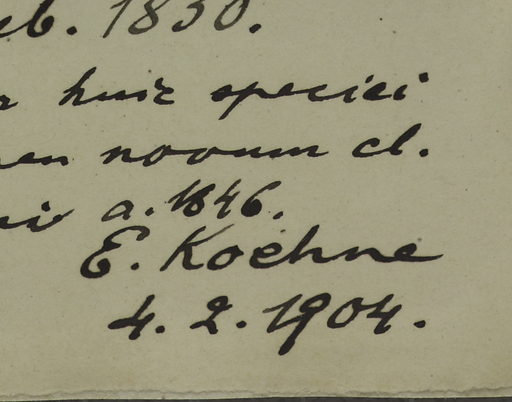 eb. 1830.
huic speciei
en novum cl.
a. 1846.
E. Koehne
4. 2. 1904.